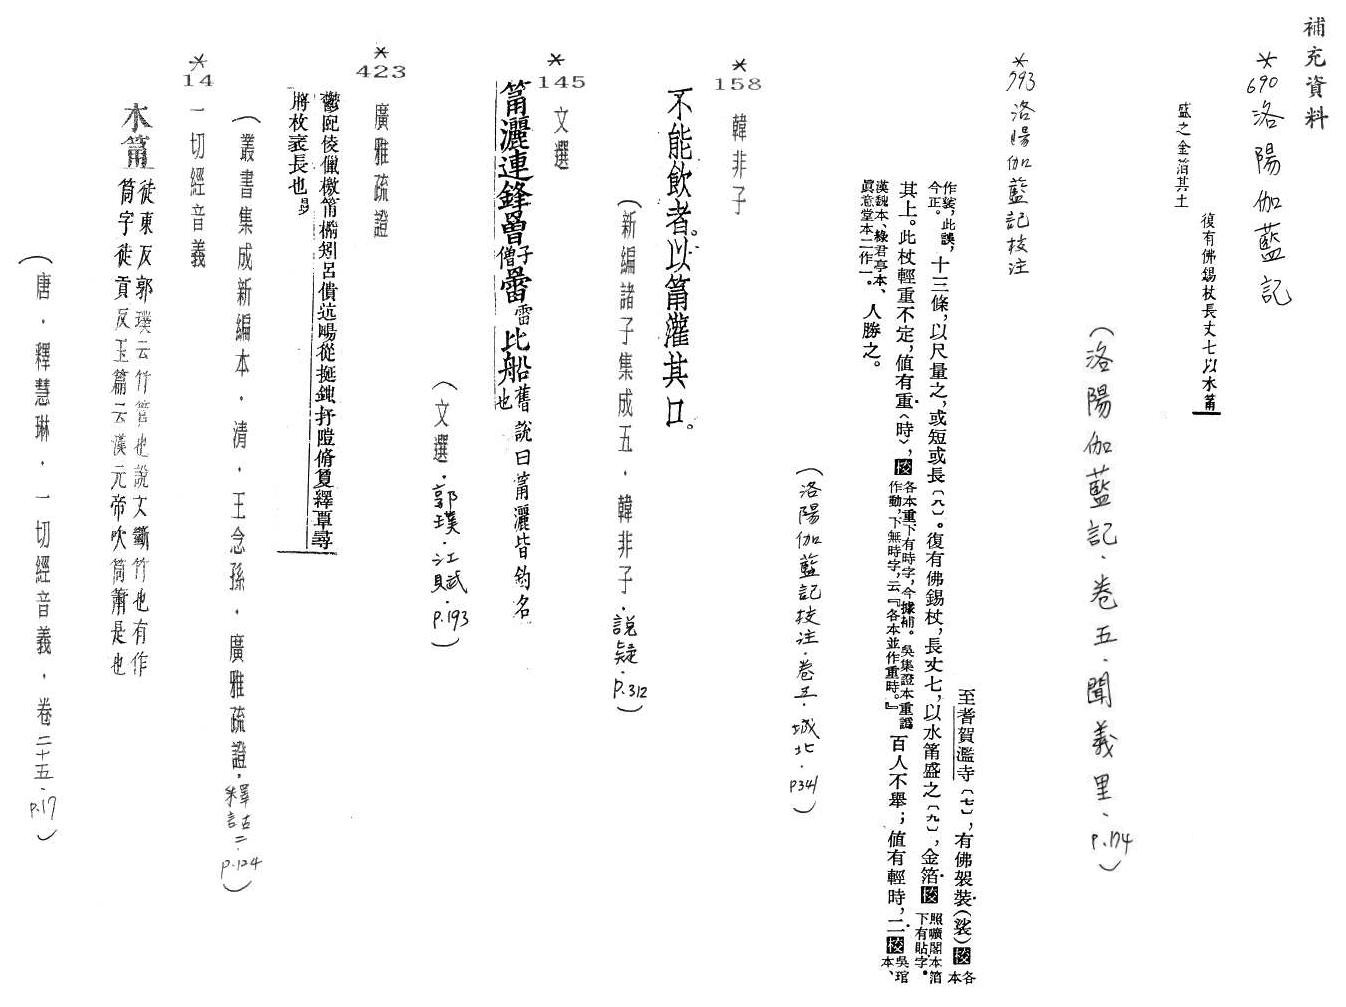 補充資料
*690 洛陽伽藍記
復有佛錫杖長丈七以水筩
盛之金箔其上
(洛陽伽藍記．卷五．聞義里．P.174)
*793 洛陽伽藍記校注
至耆賀濫寺〔七〕，有佛袈裝(裟)校各本
作裝，此誤，今正。十三條，以尺量之，或短或長〔八〕。復有佛錫杖，長丈七，以水筩盛之〔九〕，金箔校照曠閣本箔下有貼字。
其上。此杖輕重不定，值有重〈時〉，校各本重下有時字，今據補。吳集證本重譌作動，下無時字，云『各本並作重時。』百人不舉；值有輕時，二校吳琯本、
漢魏本、綠君亭本、眞意堂本二作一。人勝之。
(洛陽伽藍記校注．卷五．城北．P341)
*158 韓非子
不能飲者。以筩灌其口。
(新編諸子集成五．韓非子．說疑．P.312)
*145 文選
筩灑連鋒罾僧子罍雷比船舊說曰筩灑皆釣名也
(文選．郭璞．江賦．P.193)
*423 廣雅疏證
鬱㔽倰儠檄筩橚矧呂儥迒暢從挻鉥扜隑脩敻繹覃尋
將枚袤長也
(叢書集成新編本．清．王念孫．廣雅疏證．釋詁二．P.124)
*14 一切經音義
水筩徒東反郭璞云竹管也說文斷竹也有作
筒字徒貢反玉篇云漢元帝吹筒簫是也
(唐．釋慧琳．一切經音義．卷二十五．P.17)